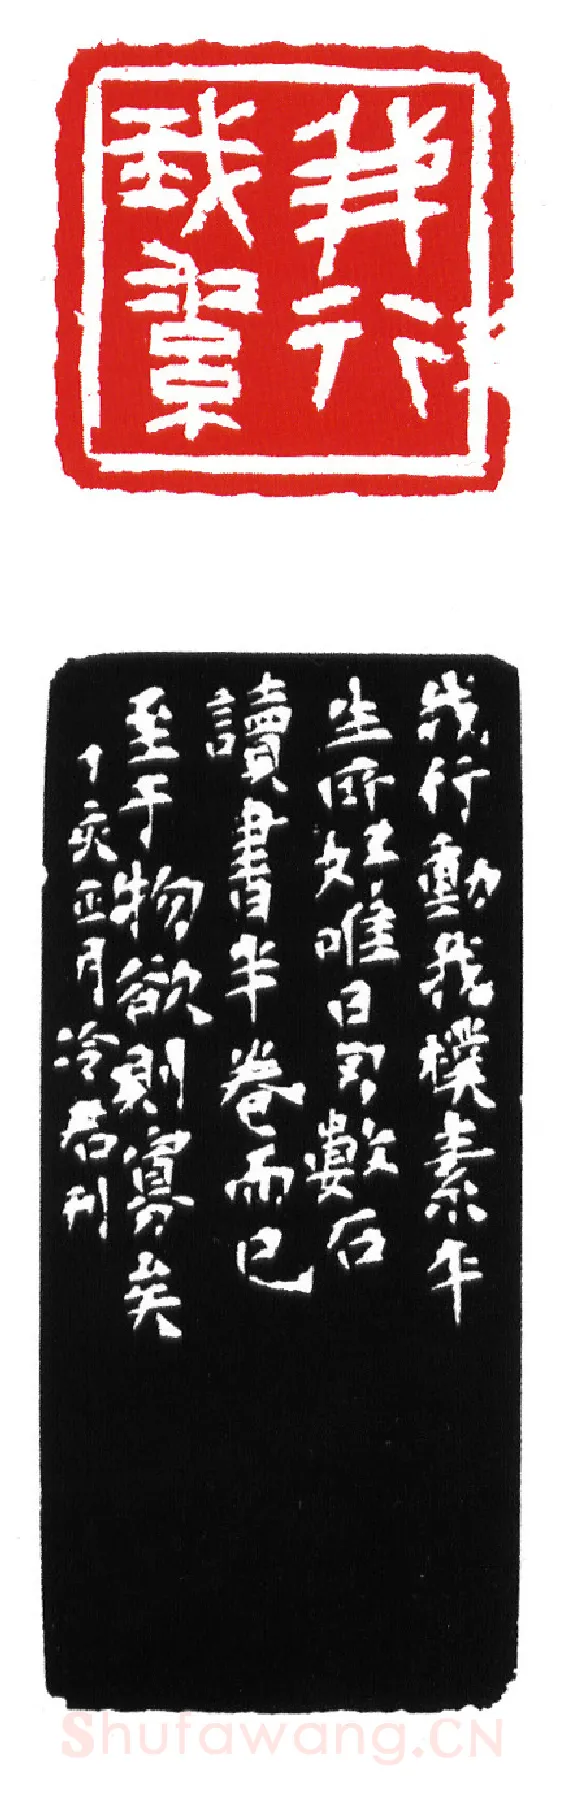 我行
我素
我行動我樸素平
生所好唯日刻數石
讀書半卷而已
至于物欲則寡矣
丁亥正月冷君刊
Shufawang.CN